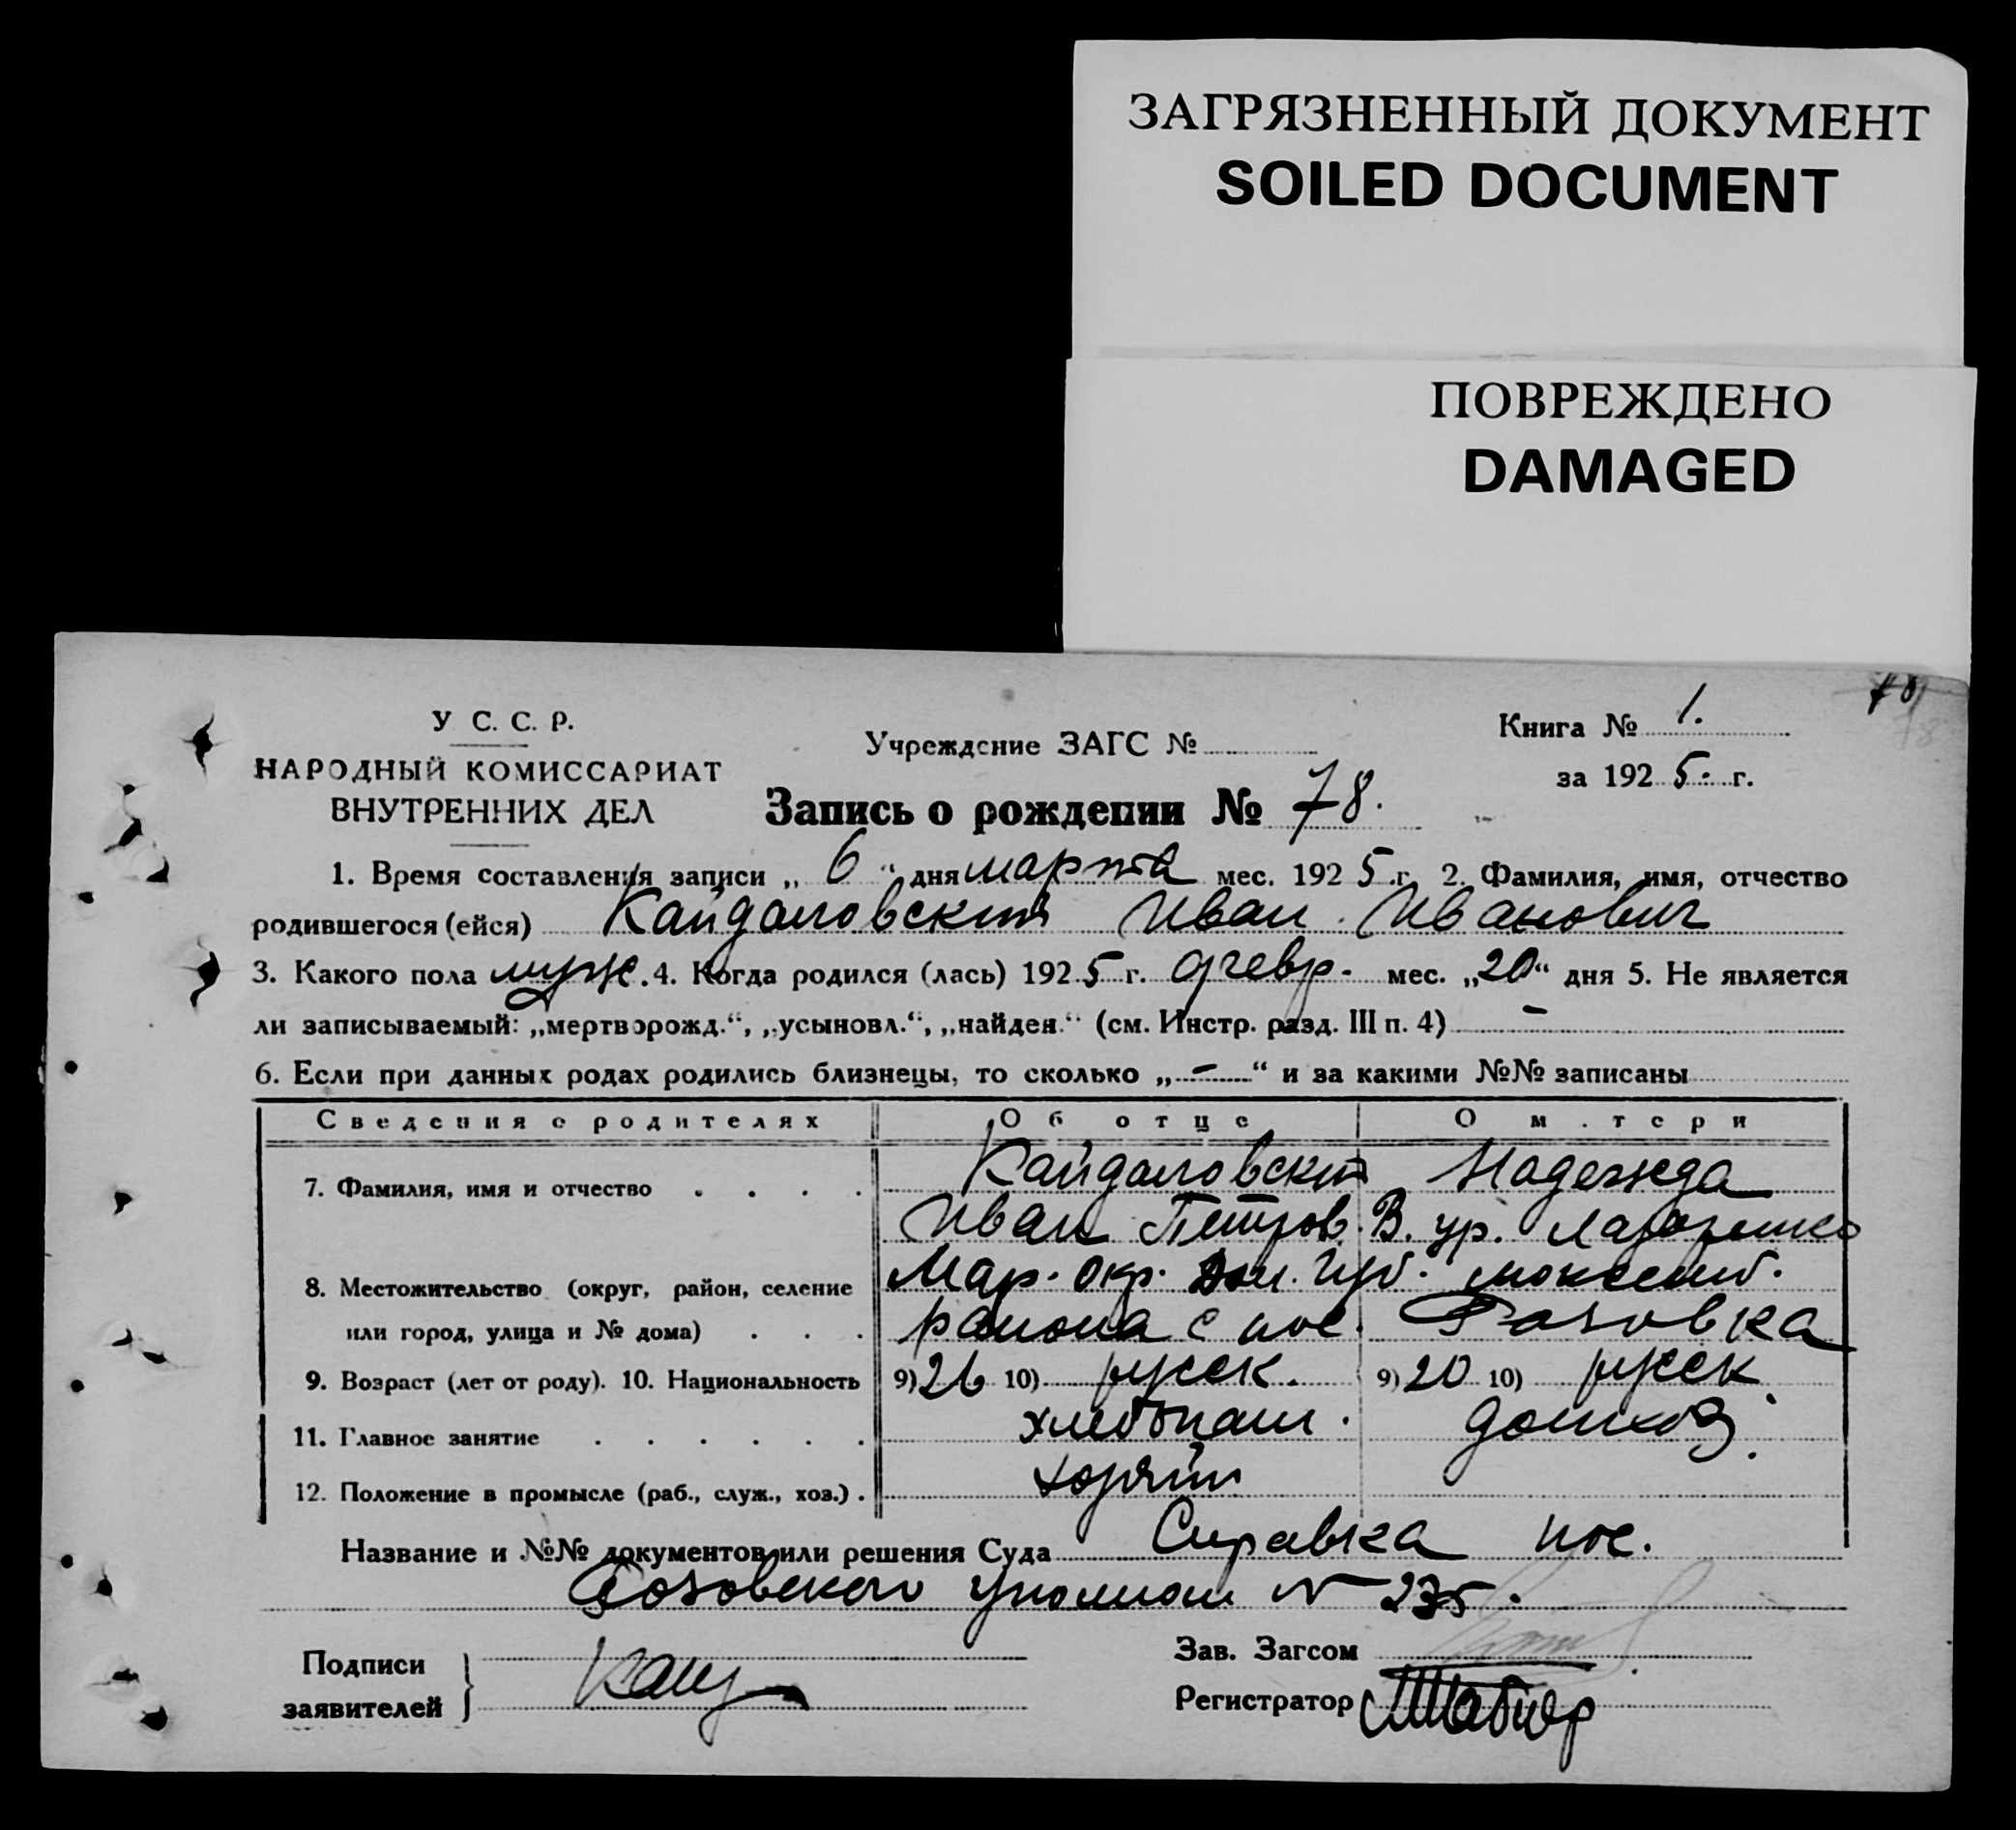 ЗАГРЯЗНЕННЫЙ ДОКУМЕНТ
SOILED DOCUMENT
ПОВРЕЖДЕНО
DAMAGED
78
У С. С. Р.
НАРОДНЫЙ КОМИССАРИАТ
ВНУТРЕННИХ ДЕЛ
Учреждение ЗАГС №
Книга № 1.
за 1925. г.
Запись о рождении № 78.
1. Время составления записи „6“ дня марта мес. 1925 г. 2. Фамилия, имя, отчество
родившегося (ейся) Кайдаловский Иван Иванович
3. Какого пола муж. 4. Когда родился (лась) 1925 г. февр. мес. „20“ дня 5. Не является
ли записываемый: „мертворожд.“, „усыновл.“, „найден.“ (см. Инстр. разд. III п. 4) –
6. Если при данных родах родились близнецы, то сколько „–“ и за какими №№ записаны
Сведения о родителях Об отце О м.тери
7. Фамилия, имя и отчество Кайдаловский Надежда
Иван Петров. В. ур.
8. Местожительство (округ, район, селение Мар. окр. Дон. губ.
или город, улица и № дома) района с пос. Розовка
9. Возраст (лет от роду). 10. Национальность 9) 26 10) русск. 9) 20 10) русск.
11. Главное занятие хлебопаш. домхоз.
12. Положение в промысле (раб., служ., хоз.)
Название и №№ документов или решения Суда Справка пос.
Розовского уполном № 235.
Подписи
заявителей
Зав. Загсом
Регистратор